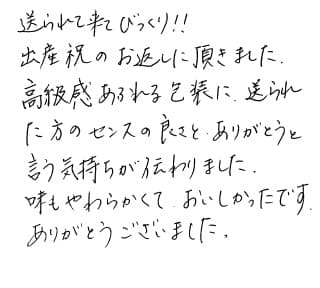 送られて来てびっくり!!
出産祝のお返しに頂きました.
高級感あふれる包装に.送られ
た方のセンスの良さと.ありがとうと
言う気持ちが伝わりました.
味もやわらかくて.おいしかったです.
ありがとうございました.